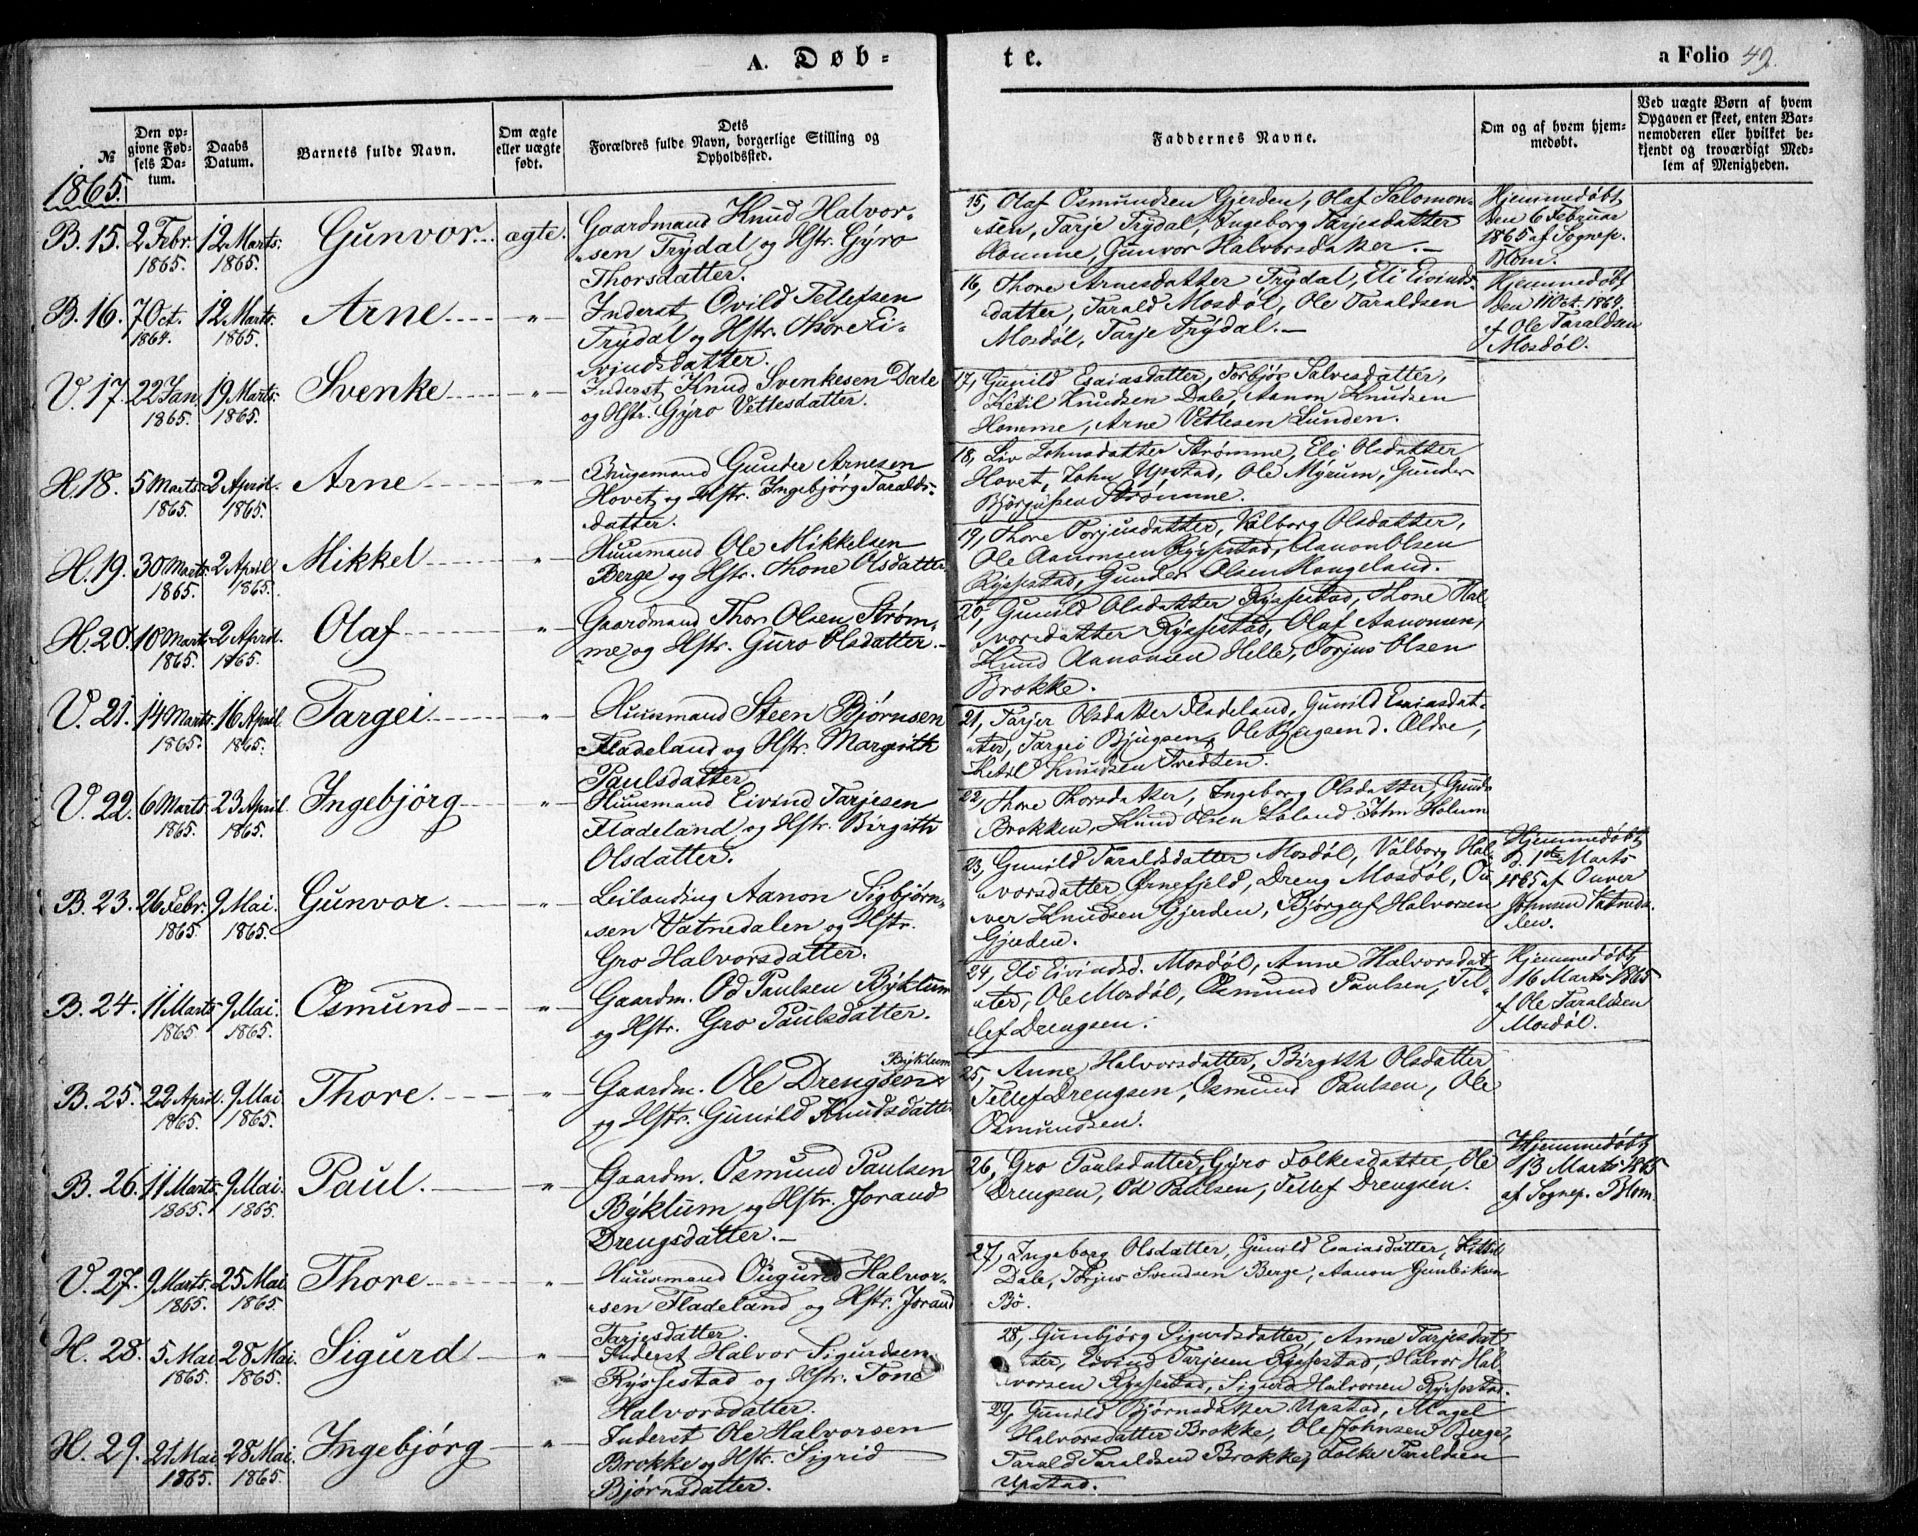 A. Døb-
te.
a Folio 49.
№
Den op-
givne Fød-
sels Da-
tum.
Daabs
Datum.
Barnets fulde Navn.
Om ægte
eller uægte
født.
Dets
Forældres fulde Navn, borgerlige Stilling og
Opholdssted.
Faddernes Navne.
Om og af hvem hjem-
medøbt.
Ved uægte Børn af hvem
Opgaven er skeet, enten Bar-
nemoderen eller hvilket be-
kjendt og troværdigt Med-
lem af Menigheden.
1865.
B. 15. 2 Febr. 1865. 12 Marts. 1865. Gunvor. ægte.
Gaardmand Knud Halvor-
sen Trydal og Hstr. Gyro
Thorsdatter.
15, Olaf Osmundsen Gjerden, Olaf Salomon-
sen, Tarje Trydal, Ingeborg Tarjesdatter
Homme, Gunvor Halvorsdatter.
Hjemmedøbt
den 6 Februar
1865 af Sognep.
Blom.
B. 16. 7 Oct. 1864. 12 Marts. 1865. Arne "
Inderst Ovild Tellefsen
Trydal og Hstr. Thore Ei-
vindsdatter.
16, Thore Arnesdatter Trydal, Eli Eivinds-
datter, Tarald Mosdøl, Ole Taraldsen
Mosdøl, Tarje Trydal.
Hjemmedøbt
den 11 Oct. 1864.
af Ole Taraldsen
Mosdøl.
V. 17. 22 Jan. 1865. 19 Marts. 1865. Svenke "
Inderst Knud Svenkesen Dale
og Hstr. Gyro Vettesdatter.
17, Gunild Esaiasdatter, Torbjør Salvesdatter,
Ketil Knudsen Dale, Aanon Knudsen
Homme, Arne Vetlesen Lunden.
H. 18. 5 Marts. 1865. 2 April. 1865. Arne "
Brugsmand Gunder Arnesen
Hovet og Hstr. Ingebjørg Taralds-
datter.
18, Liv Johnsdatter Strømme, Eli Olsdatter
Hovet, John Upstad, Ole Myrum, Gunder
Bjørgufsen Strømme.
H. 19. 30 Marts. 1865. 2 April. 1865. Mikkel "
Huusmand Ole Mikkelsen
Berge og Hstr. Thone Olsdatter.
19, Thore Torjusdatter, Valborg Olsdatter,
Ole Aanonsen Rysstad, Aanon Olsen
Rysstad, Gunder Olsen Langeland.
H. 20. 10 Marts. 1865. 2 April. 1865. Olaf "
Gaardmand Thor Olsen Strøm-
me og Hstr. Guro Olsdatter.
20, Gunild Olsdatter Ryssestad, Thone Hal-
vorsdatter Ryssestad, Olaf Aanonsen,
Knud Aanonsen Helle, Torjus Olsen
Brokke.
V. 21. 14 Marts. 1865. 16 April. 1865. Targei "
Huusmand Steen Bjørnsen
Fladeland og Hstr. Margith
Paulsdatter.
21, Tarjer Olsdatter Fladeland, Gunild Esaiasdat-
ter, Targei Bjugsen, Ole Bjugsen d. Ældre,
Ketil Knudsen Tredten.
V. 22. 6 Marts. 1865. 23 April. 1865. Ingebjørg "
Huusmand Eivind Tarjesen
Fladeland og Hstr. Birgith
Olsdatter.
22, Thore Thorsdatter, Ingeborg Olsdatter,
Brokken, Knud Olsen Løland, John Holum
B. 23. 26 Febr. 1865. 9 Mai. 1865. Gunvor "
Leilending Aanon Sigbjørn-
sen Vatnedalen og Hstr.
Gro Halvorsdatter.
23, Gunild Taraldsdatter Mosdøl, Valborg Hal-
vorsdatter Ørnefjeld, Dreng Mosdøl, Ou-
ver Knudsen Gjerden, Bjørguf Halvorsen
Gjerden.
Hjemmedøbt
d. 1ste Marts
1865 af Ouver
Johnsen Vatneda-
len.
B. 24. 11 Marts 1865. 9 Mai. 1865. Osmund "
Gaardm. Od Paulsen Byklum
og Hstr. Gro Paulsdatter.
24, Eli Eivindsd. Mosdøl, Anne Halvorsdat-
ter, Ole Mosdøl, Osmund Paulsen, Tel-
lef Drengsen.
Hjemmedøbt
16 Marts 1865
af Ole Taraldsen
Mosdøl.
B. 25. 22 April. 1865. 9 Mai. 1865. Thore. "
Gaardm. Ole Drengsen Byklum
og Hstr. Gunild Knudsdatter
25, Anne Halvorsdatter, Birgith Olsdatter
Tellef Drengsen, Osmund Paulsen, Ole
Osmundsen.
B. 26. 11 Marts. 1865. 9 Mai. 1865. Paul. "
Gaardm. Osmund Paulsen
Byklum og Hstr. Jorand
Drengsdatter.
26, Gro Paulsdatter, Gyro Folkesdatter, Ole
Drengsen, Od Paulsen, Tellef Drengsen.
Hjemmedøbt
13 Marts 1865
af Sognep. Blom.
V. 27. 9 Marts. 1865. 25 Mai. 1865. Thore "
Huusmand Ougund Halvor-
sen Fladeland og Hstr. Jorand
Tarjesdatter.
27, Ingeborg Olsdatter, Gunild Esaiasdatter, Kittil
Dale, Torjus Svendsen Berge, Aanon Gunleiksen
Bø.
H. 28. 5 Mai 1865. 28 Mai. 1865. Sigurd "
Inderst Halvor Sigurdsen
Ryssestad og Hstr. Tone
Halvorsdatter.
28, Gunbjørg Sigurdsdatter, Anne Tarjesdat-
ter, Eivind Tarjesen Ryssestad, Halvor Hal-
vorsen Ryssestad, Sigurd Halvorsen Ryssestad.
H. 29. 21 Mai 1865. 28 Mai. 1865. Ingebjørg "
Inderst Ole Halvorsen
Brokke og Hstr. Sigrid
Bjørnsdatter.
29, Gunild Bjørnsdatter Upstad, Magel
Halvorsdatter Brokke, Ole Johnsen Berge,
Tarald Taraldsen Brokke, Folke Taraldsen
Upstad.